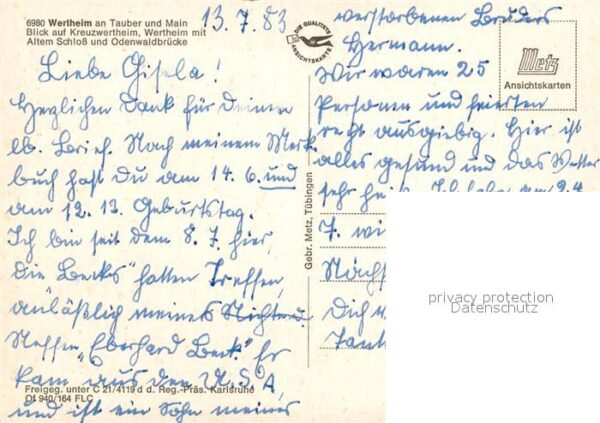 6980 Wertheim an Tauber und Main
Blick auf Kreuzwertheim, Wertheim mit
Altem Schloß und Odenwaldbrücke
13.7.83
Liebe Gisela!
Herzlichen Dank für Deinen
lb. Brief. Nach meinem Merk
buch hast Du am 14. 6. und
am 12. 12. Geburtstag.
Ich bin seit dem 8. 7. hier,
die Becks" hatten Treffen,
anläßlich meines Nichten
Neffen „Eberhard Beck." Er
kam aus den U.S.A,
und ist ein Sohn meines
Freigeg. unter C 21/4119 d d. Reg.-Präs. Karlsruhe
Ot 940/164 FLC
DIE QUALITÄTS
ANSICHTSKARTE
Gebr. Metz, Tübingen
verstorbenen Bruders
Hermann.
Wir waren 25
Personen und feierten
recht ausgiebig. Hier ist
alles gesund und das Wetter
sehr
7.
Nächs
Dich
Tant
Metz
Ansichtskarten
privacy protection
Datenschutz